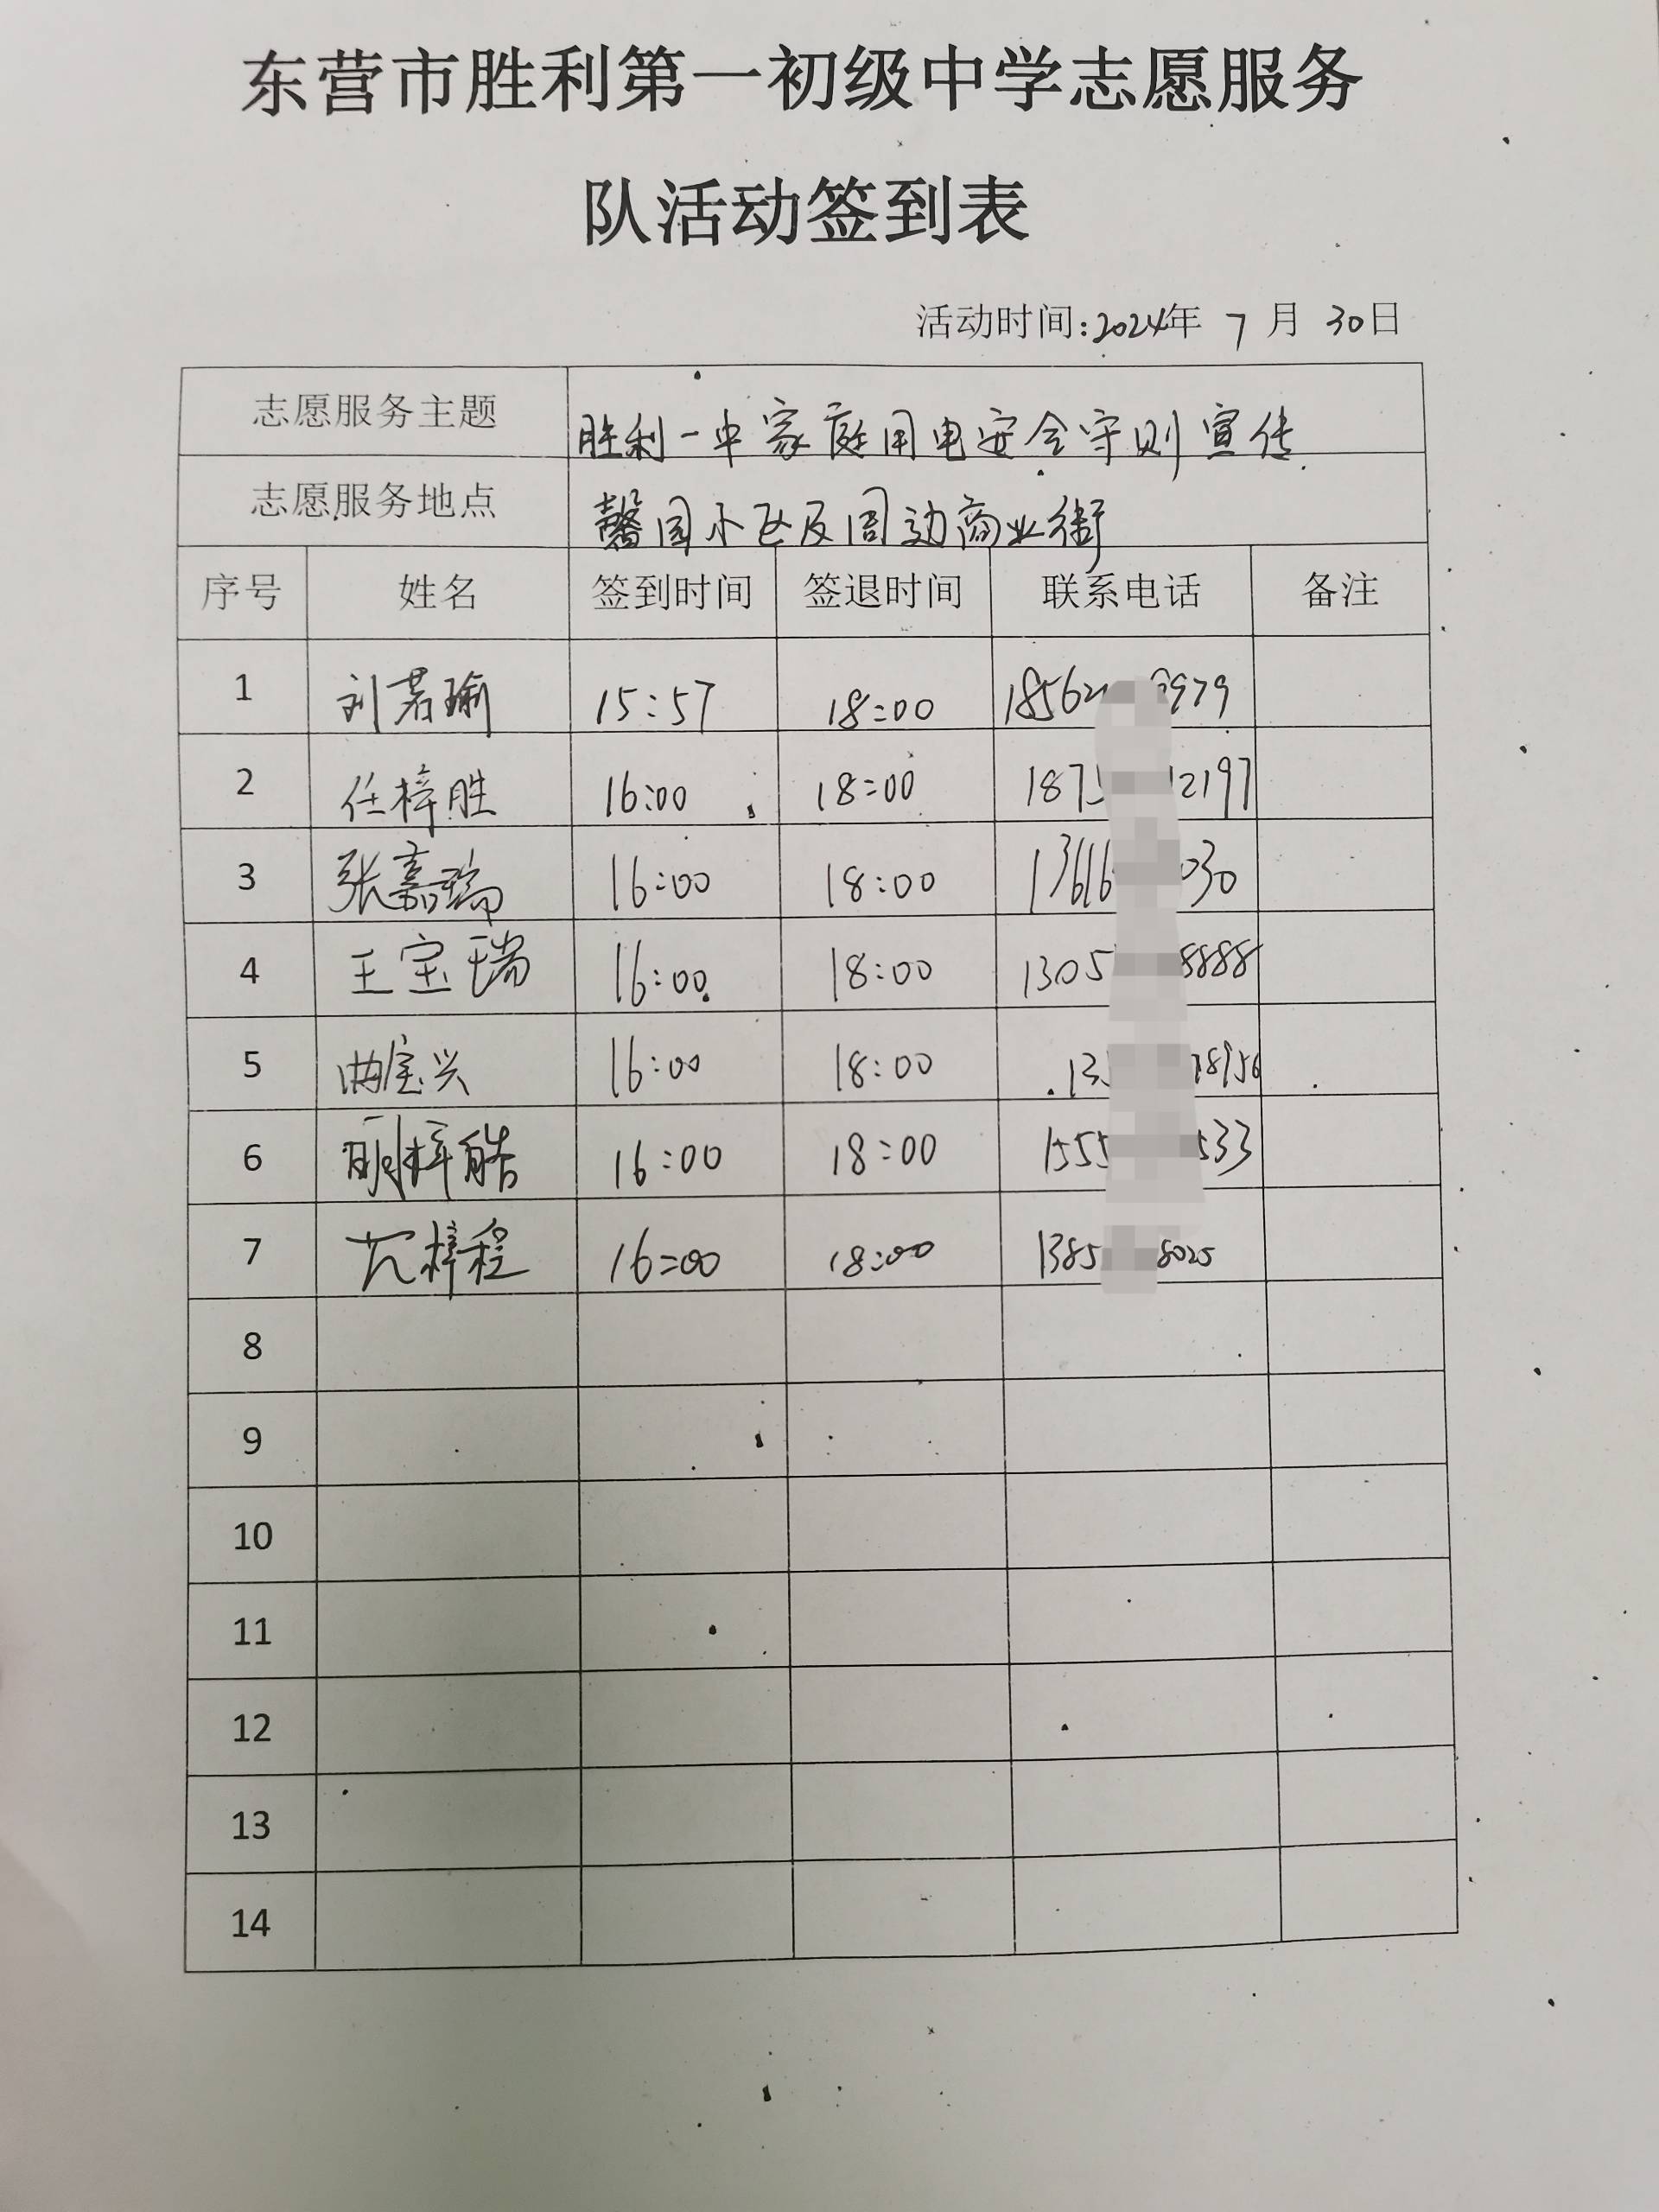 东营市胜利第一初级中学志愿服务
队活动签到表
活动时间:2024年 7 月 30日
志愿服务主题 胜利一中家庭用电安全守则宣传
志愿服务地点 馨园小区及周边商业街
序号 姓名 签到时间 签退时间 联系电话 备注
1 刘若瑜 15:57 18:00 1856 979
2 任梓胜 16:00 18:00 187 2197
3 张嘉瑞 16:00 18:00 13616 030
4 王宝瑞 16:00 18:00 1305 8888
5 曲宝兴 16:00 18:00 13 8956
6 明梓皓 16:00 18:00 155 33
7 梓程 16:00 18:00 1385 8025
8
9
10
11
12
13
14